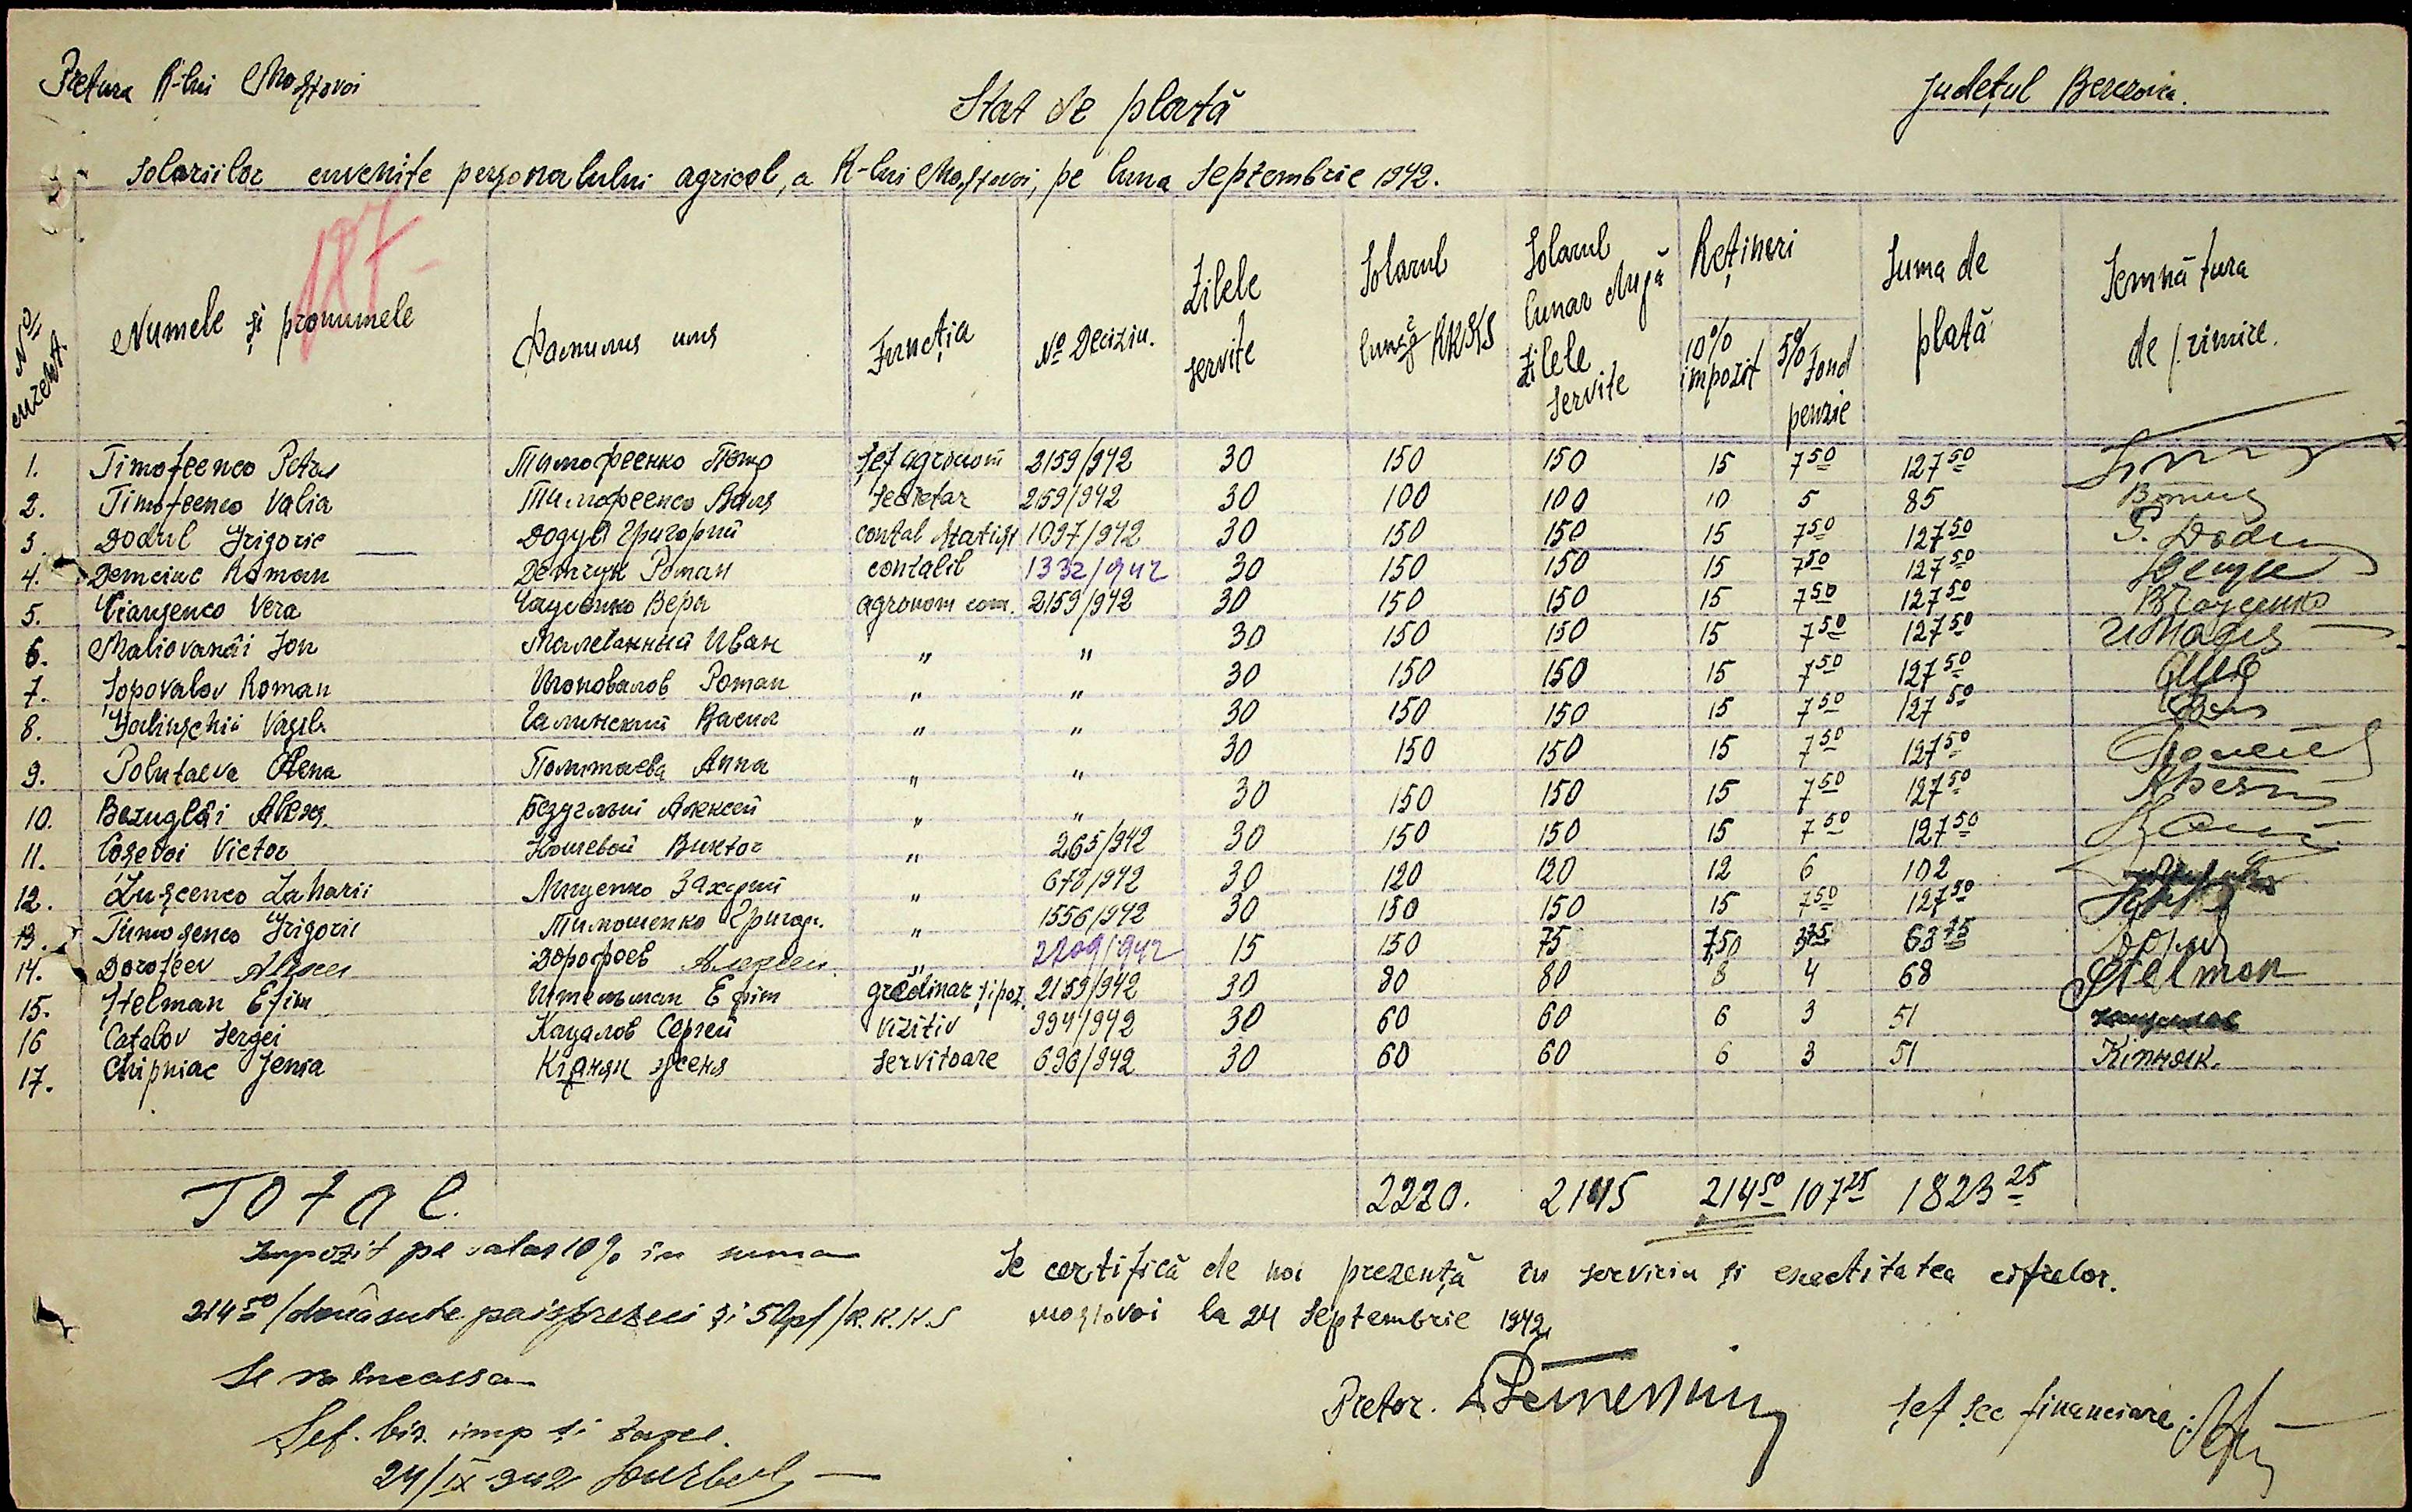 Pretura R-lui Mostovoi
Județul Berezovca.
Stat de plată
Salariilor cuvenite personalului agricol, a R-lui Mostovoi, pe luna Septembrie 1942.
187
No curent. Numele și pronumele Фамилия имя Funcția No Deciziu. Zilele servite Solarul lunar RKKS Solarul lunar după zilele servite Rețineri 10% impozit 5% Fond penzie Suma de plată Semnătura de primire.
1. Timofeenco Petru Тимофеенко Петр Șef agronom 2159/942 30 150 150 15 7 50 127 50
2. Timofeenco Valia Тимофеенко Валя Secretar 2159/942 30 100 100 10 5 85
3. Dodul Grigorie Додул Григорий contab statist 1097/942 30 150 150 15 7 50 127 50
4. Demciuc Roman Демчук Роман contabil 1332/942 30 150 150 15 7 50 127 50
5. Ciausenco Vera Чаусенко Вера agronom com. 2159/942 30 150 150 15 7 50 127 50
6. Maliovanâi Ion Малеванный Иван " " 30 150 150 15 7 50 127 50
7. Șopovalov Roman Шоповалов Роман " " 30 150 150 15 7 50 127 50
8. Galinschii Vasile Галинский Васил " " 30 150 150 15 7 50 127 50
9. Polutaeva Ana Полутаева Анна " " 30 150 150 15 7 50 127 50
10. Bezuglâi Alexei Безуглый Алексей " " 30 150 150 15 7 50 127 50
11. Coșevoi Victor Кошевой Виктор " 265/942 30 150 150 15 7 50 127 50
12. Lușcenco Zaharii Лущенко Захарий " 678/942 30 120 120 12 6 102
13. Timoșenco Grigorie Тимошенко Григор. " 1556/942 30 150 150 15 7 50 127 50
14. Dorofeev Alexei Дорофеев Алексей " 2209/942 15 150 75 7,50 3 75 63 75
15. Ștelman Efim Штельман Ефим grădinar șipoz. 2159/942 30 80 80 8 4 68 Stelman
16 Catalov Sergei Каталов Сергей Vizitiv 994/942 30 60 60 6 3 51
17. Chipniac Jenia Кіпняк Женя Servitoare 696/942 30 60 60 6 3 51 Кіпняк.
Total. 2220. 2145 214 50 107 25 1823 25
Impozit pe salar 10% în suma
214 50 /două sute paisprezeci și 50 pf/ R.K.K.S
Se va încassa
Șef. bir. imp și taxe.
24/IX 942
Se certifică de noi prezența în serviciu și exactitatea cifrelor.
Mostovoi la 24 Septembrie 1942,
Pretor.
Șef sec financiare: